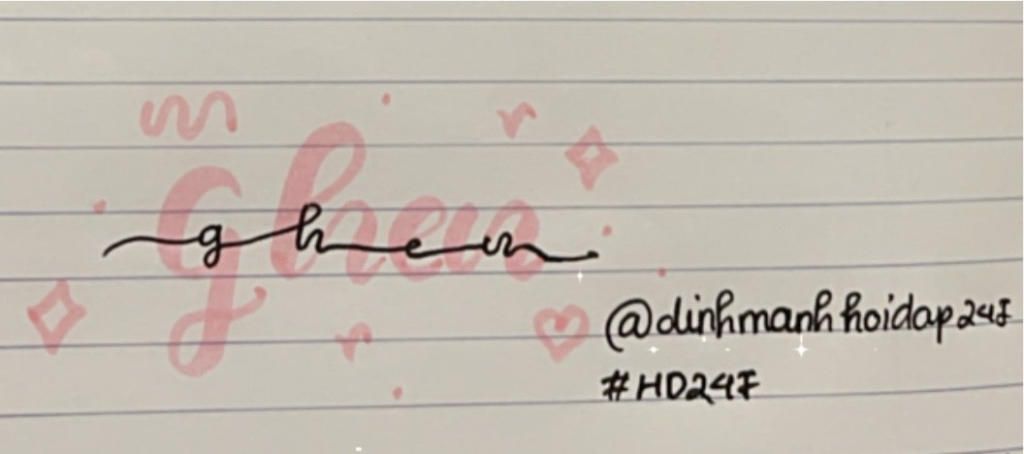 ghen
ghen
@dinhmanhhoidap24F
#HD24F